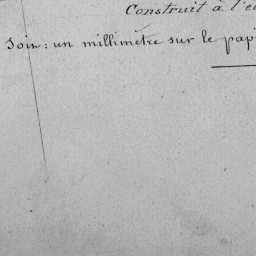 Construit à l'
Soit: un millimètre sur le pap